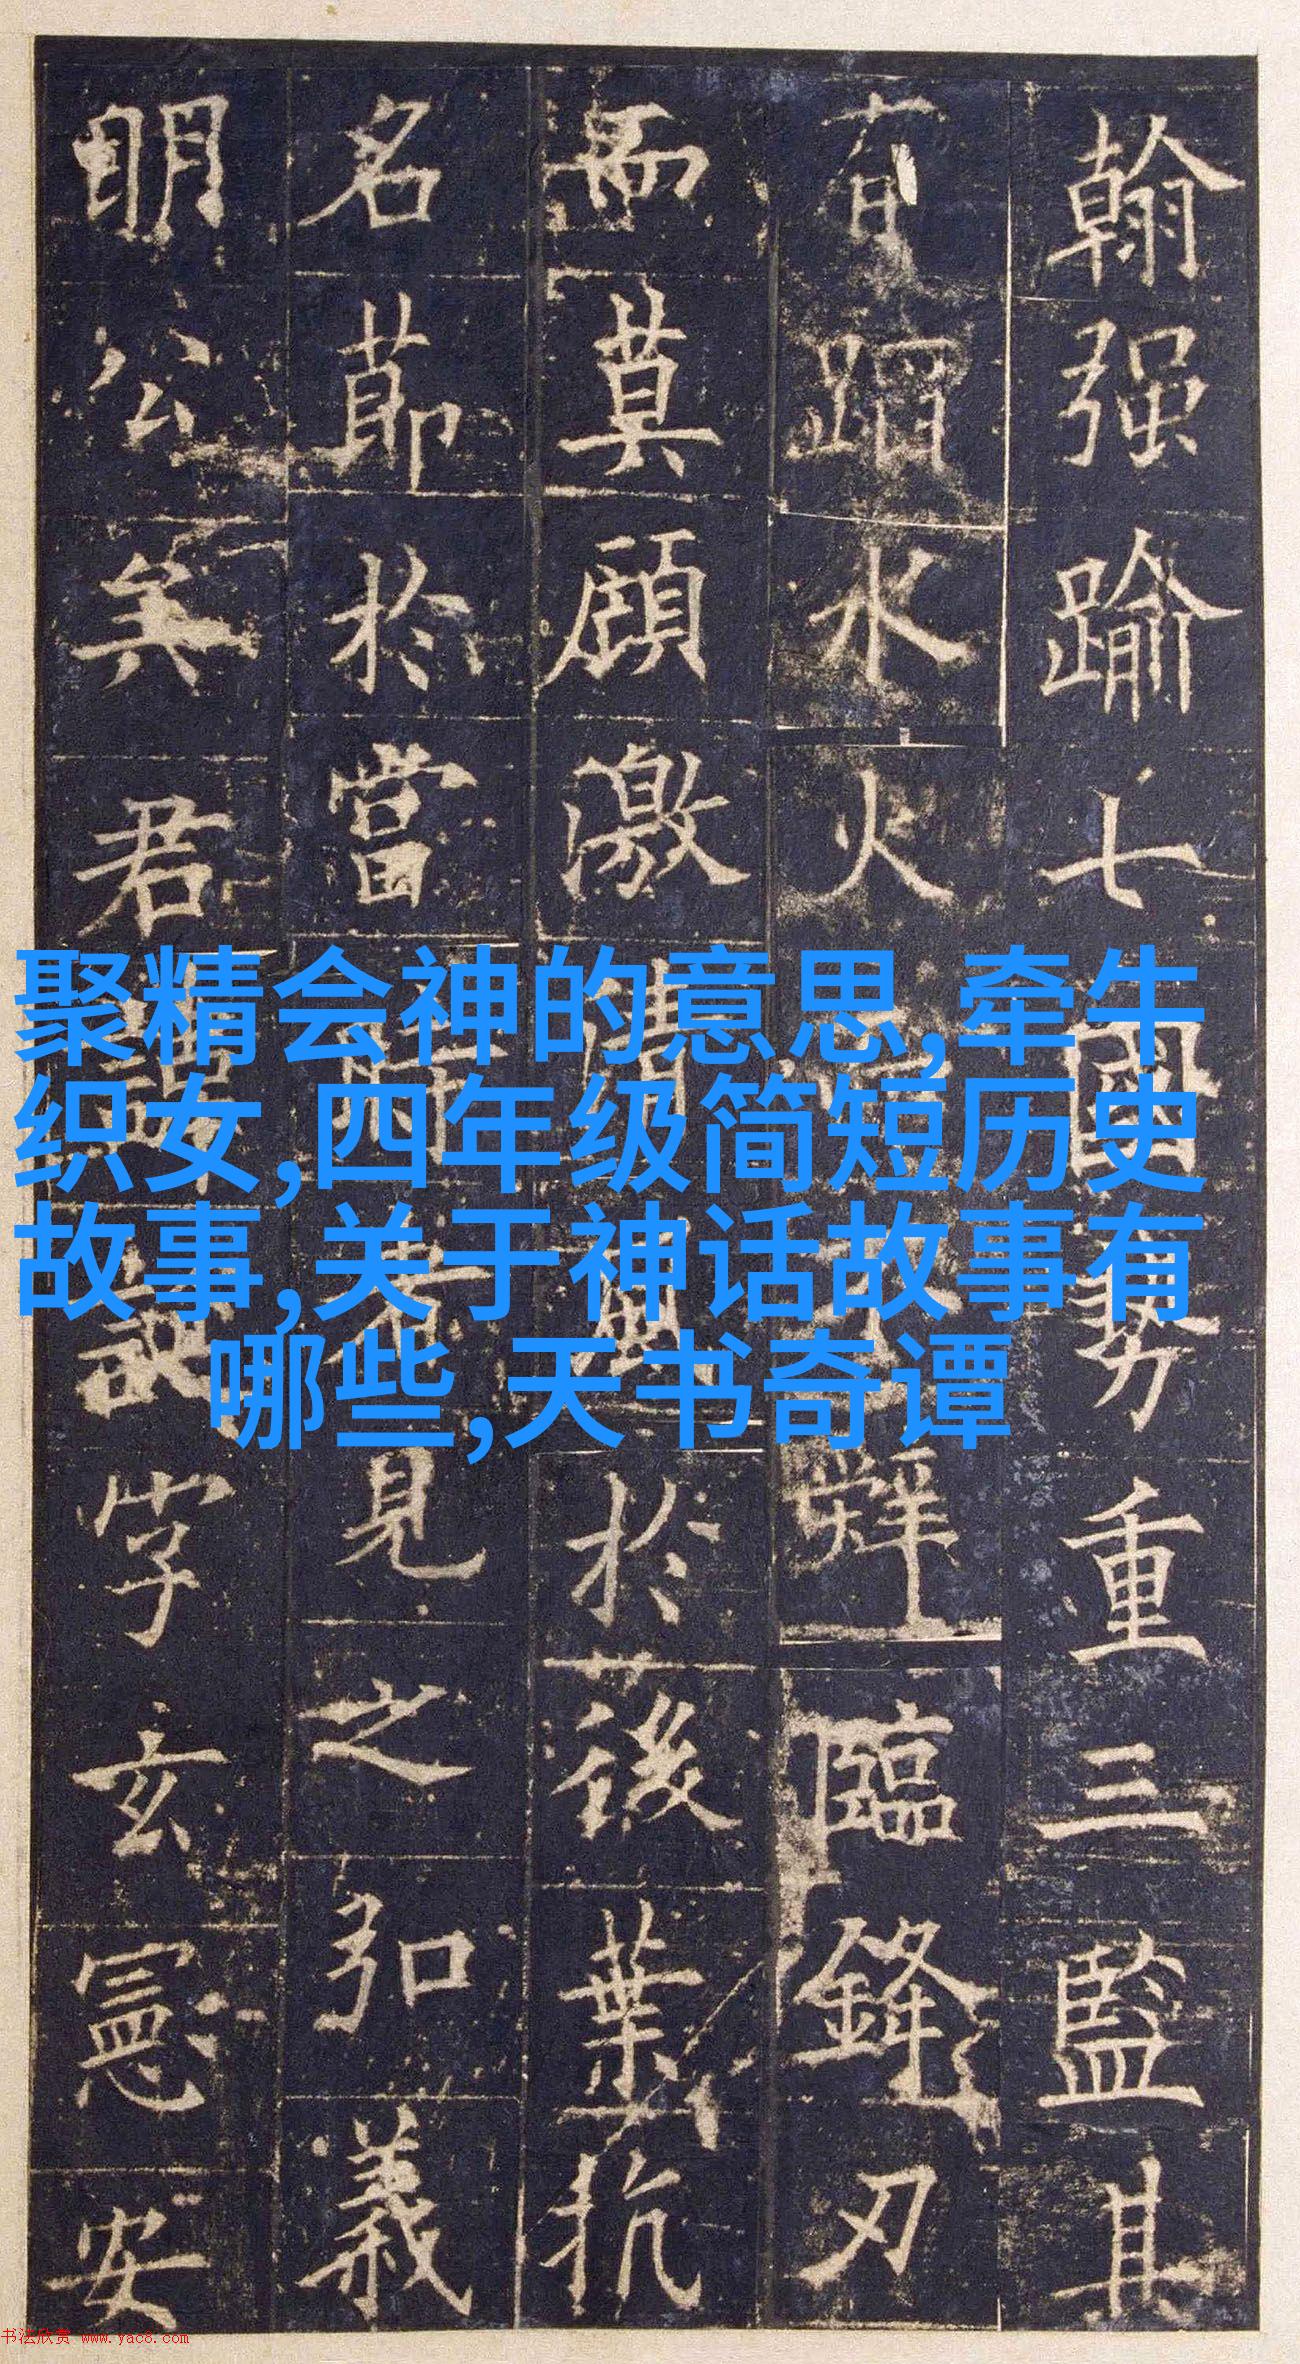 翰强踰七國勢重三監其
有蹈水火辭臨鋒刃
而莫顧激清風於後葉抗
名節於當時者見之弘義
明公矣君諱誕字玄憲安
聚精会神的意思,牵牛
织女,四年级简短历史
故事,关于神话故事有
哪些,天书奇谭
书法欣赏 www.yac8.com